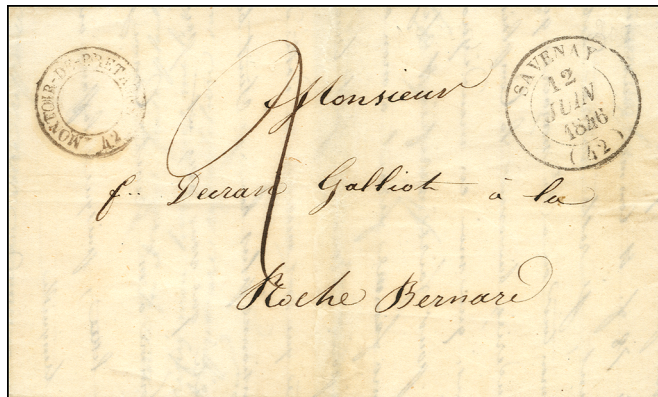 MONTOIR-DE-BRETAGNE
42
SAVENAY
12
JUIN
1846
(42)
2
Monsieur
f.. Decran Galliot à la
Roche Bernard